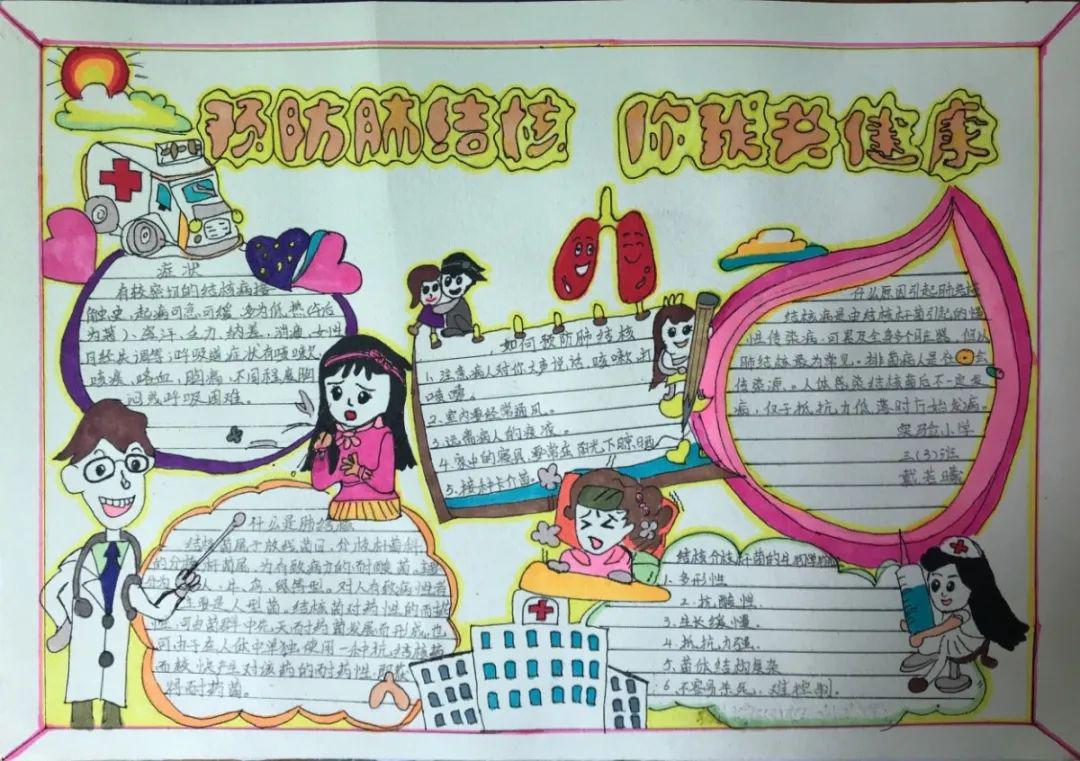 预防肺结核 你我共健康
症状
有较密切的结核病接
触史,起病可急可缓,多为低热(午后
为著)、盗汗、乏力、纳差、消瘦、女性
月经失调等;呼吸道症状有咳嗽、
咳痰、咯血、胸痛、不同程度胸
闷或呼吸困难。
如何预防肺结核
1、注意病人对你大声说话、咳嗽、打
喷嚏。
2、室内要经常通风。
3、远离病人的痰液。
4、家中的寝具要常在阳光下晾晒
5、接种卡介苗。
什么原因引起肺结核
结核病是由结核杆菌引起的慢
性传染病,可累及全身多个脏器,但以
肺结核最为常见。排菌病人是
传染源。人体感染结核菌后不一定发
病,仅于抵抗力低落时方始发病。
实验小学
三(3)班
戴若曦
什么是肺结核
结核菌属于放线菌目,分枝杆菌科
的分枝杆菌属,为有致病力的耐酸菌。主要
分为人、牛、鸟、鼠等型。对人有致病性者
主要是人型菌。结核菌对药性的耐药
性,可由菌群中先天耐药菌发展而形成,也
可由于在人体中单独使用一种抗结核药
而较快产生对该药的耐药性,即获
得耐药菌。
结核分枝杆菌的生物学
1、多形性
2、抗酸性
3、生长缓慢。
4、抵抗力强。
5、菌体结构复杂
6、不容易杀死,难控制。